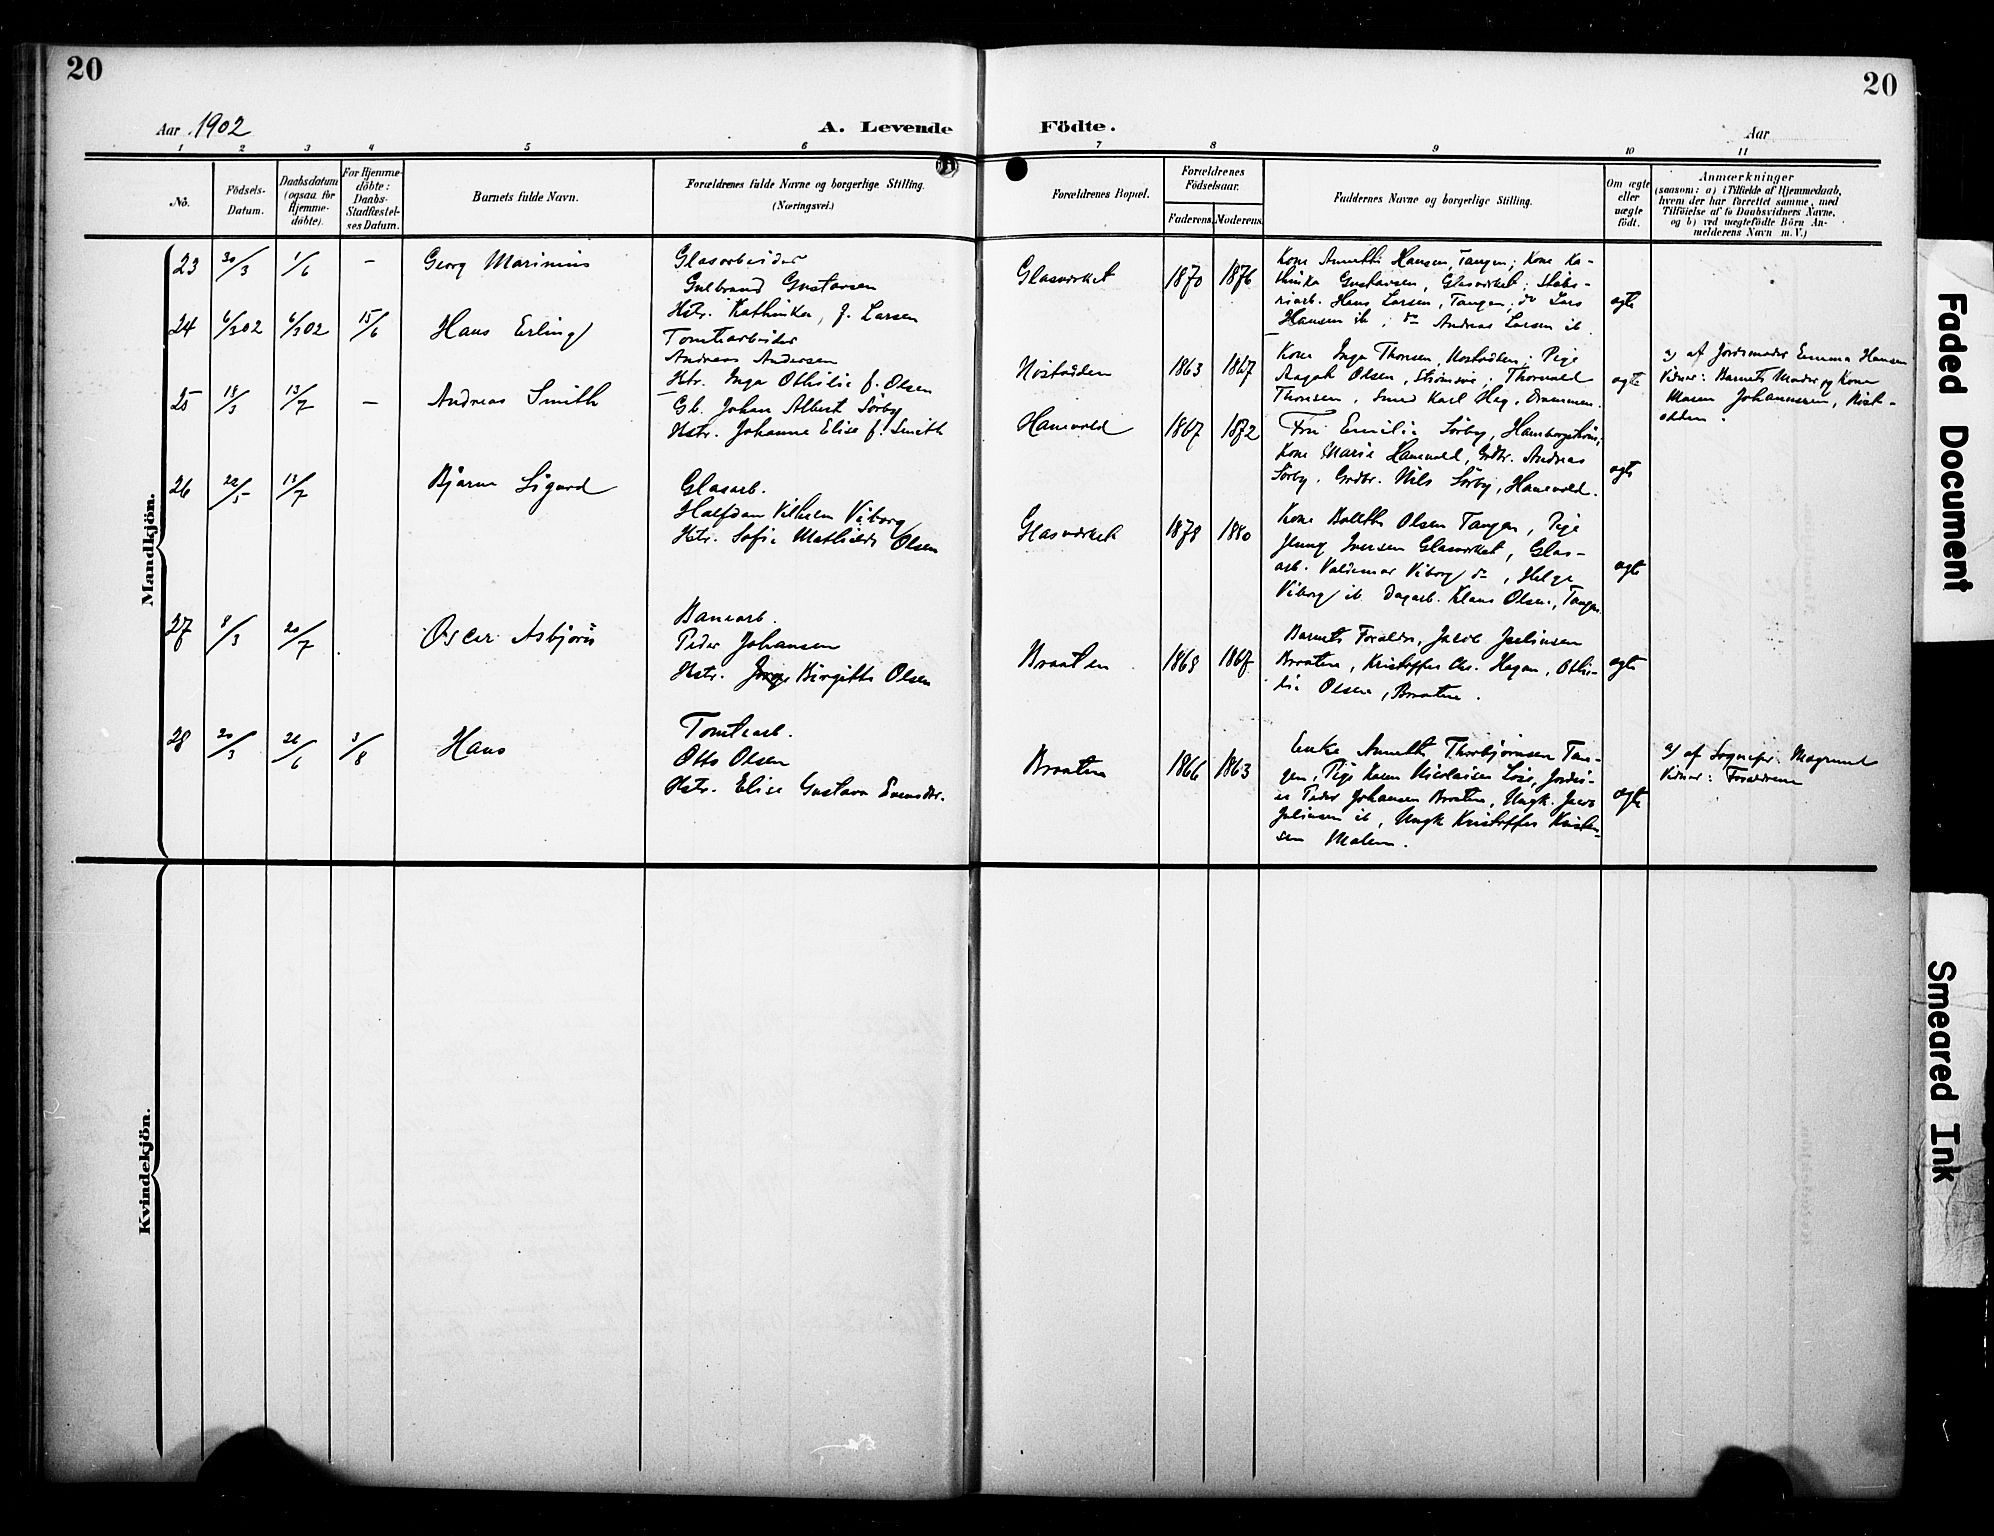 20
20
Aar 1902
A. Levende Födte.
Aar
1 2 3 4 5 6 7 8 9 10 11
No.
Födsels-
Datum.
Daabsdatum
(ogsaa for
Hjemme-
döbte).
For Hjemme-
döbte:
Daabs-
Stadfæstel-
ses Datum.
Barnets fulde Navn.
Forældrenes fulde Navne og borgerlige Stilling.
(Næringsvei.)
Forældrenes Bopæl.
Forældrenes
Födselsaar.
Faderens
Moderens
Faddernes Navne og borgerlige Stilling.
Om ægte
eller
uægte
födt.
Anmærkninger
(saasom: a) i Tilfælde af Hjemmedaab,
hvem der har forrettet samme, med
Tilföielse af to Daabsvidners Navne,
og b) ved uægtefödte Börn An-
melderens Navn m. V.)
Mandkjön.
23 30/3 1/6 - Georg Marinius
Glasarbeider
Gulbrand Gustavsen
Hstr. Kathinka, f. Larsen
Glasværket 1870 1876
Kone Annette Hansen, Tangen; Kone Ka-
thinka Gustavsen, Glasværket;
Hans Larsen, Tangen; do Lars
Hansen ib; do Andreas Larsen ib.
ægte
24 6/3 02 6/3 02 15/6 Hans Erling
Tomtearbeider
Andreas Andersen
Hstr. Inga Othilie f. Olsen
1863 1867
Kone Inga Thoresen, Pige
Aagot Olsen, Strømsøe; Thorvald
Thoresen, Smed Karl Heg, Drammen.
ægte
a) af Jordemoder Emma Hansen
Vidner: Barnets Moder og Kone
Maren Johannessen,
25 18/3 13/7 - Andreas Smith
Gb. Johan Albert Sørby
Hstr. Johanne Elise f. Smith
Hanevold 1867 1872
Fru Emilie Sørby,
Kone Marie Hanevold, Grdbr. Andreas
Sørby, Grdbr. Nils Sørby, Hanevold.
ægte
26 22/5 13/7 Bjarne Sigurd
Glasarb.
Halfdan Vilhelm Viborg
Hstr. Sofie Mathilde Olsen
Glasværket 1878 1880
Kone Bolette Olsen Tangen, Pige
Jenny Iversen Glasværket, Glas-
arb. Valdemar Viborg do, Helge
Viborg ib. Dagarb. Klaus Olsen, Tangen.
ægte
27 8/3 20/7 Oscar Asbjørn
Banearb.
Peder Johansen
Hstr. Birgitte Olsen
Braaten 1868 1867
Barnets Forældre, Jacob Juliussen
Braaten, Kristoffer Chr. Hagen, Othi-
lie Olsen, Braaten.
ægte
28 20/3 26/6 3/8 Hans
Tomtearb.
Otto Olsen
Hstr. Elise Gustava Evensdtr.
Braaten 1866 1863
Enke Annette Thorbjørnsen Tan-
gen, Pige Karen Nicolaisen
Peder Johansen Braaten, Ungk. Jacob
Juliussen ib, Ungk Kristoffer Kristen-
sen Malem.
ægte
a) af Sognepr. Magnus
Vidner: Forældrene
Kvindekjön.
Faded Document
Smeared Ink